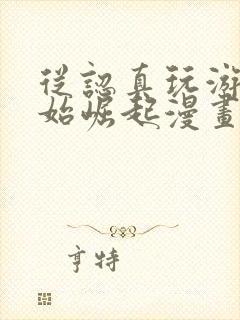 從認真玩游
始崛起漫畫
亨特